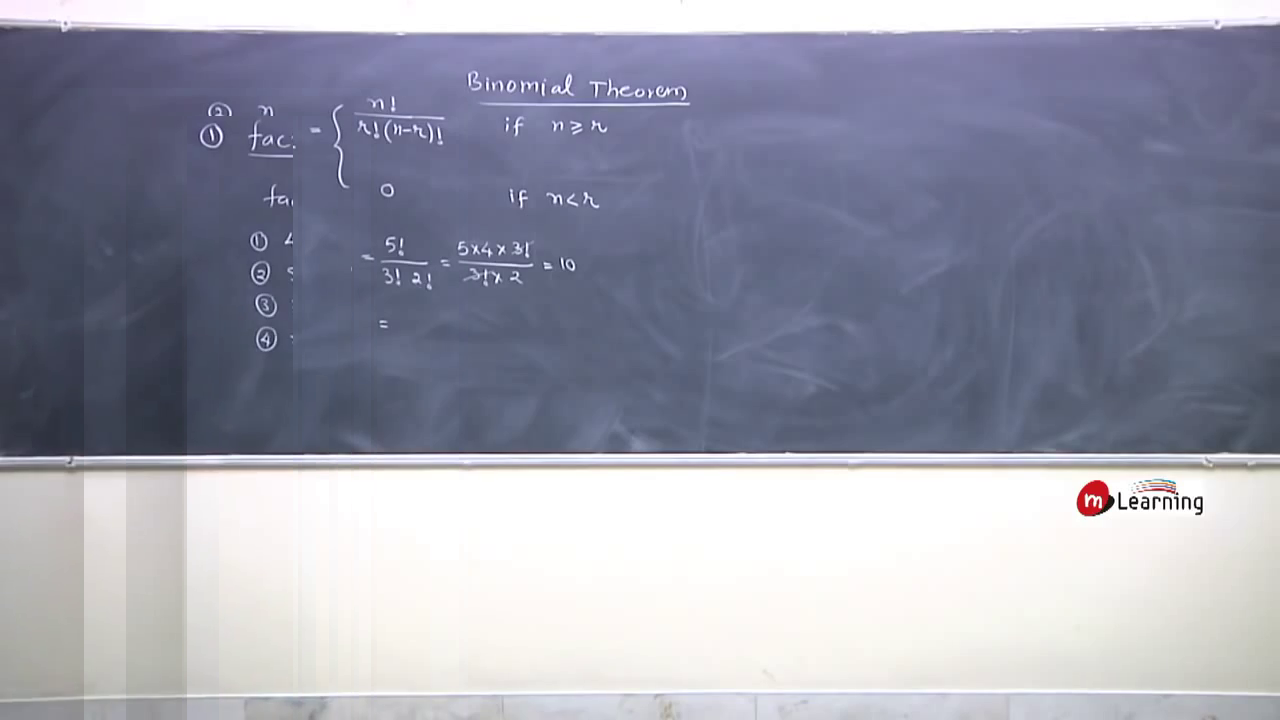 Binomial Theorem
② n
① fac. = { n! / r!(n-r)! if n ≥ r
0 if n < r
① 4
= 5! / 3! 2! = 5×4×3! / 3!×2 = 10
②
③
④ =
m Learning